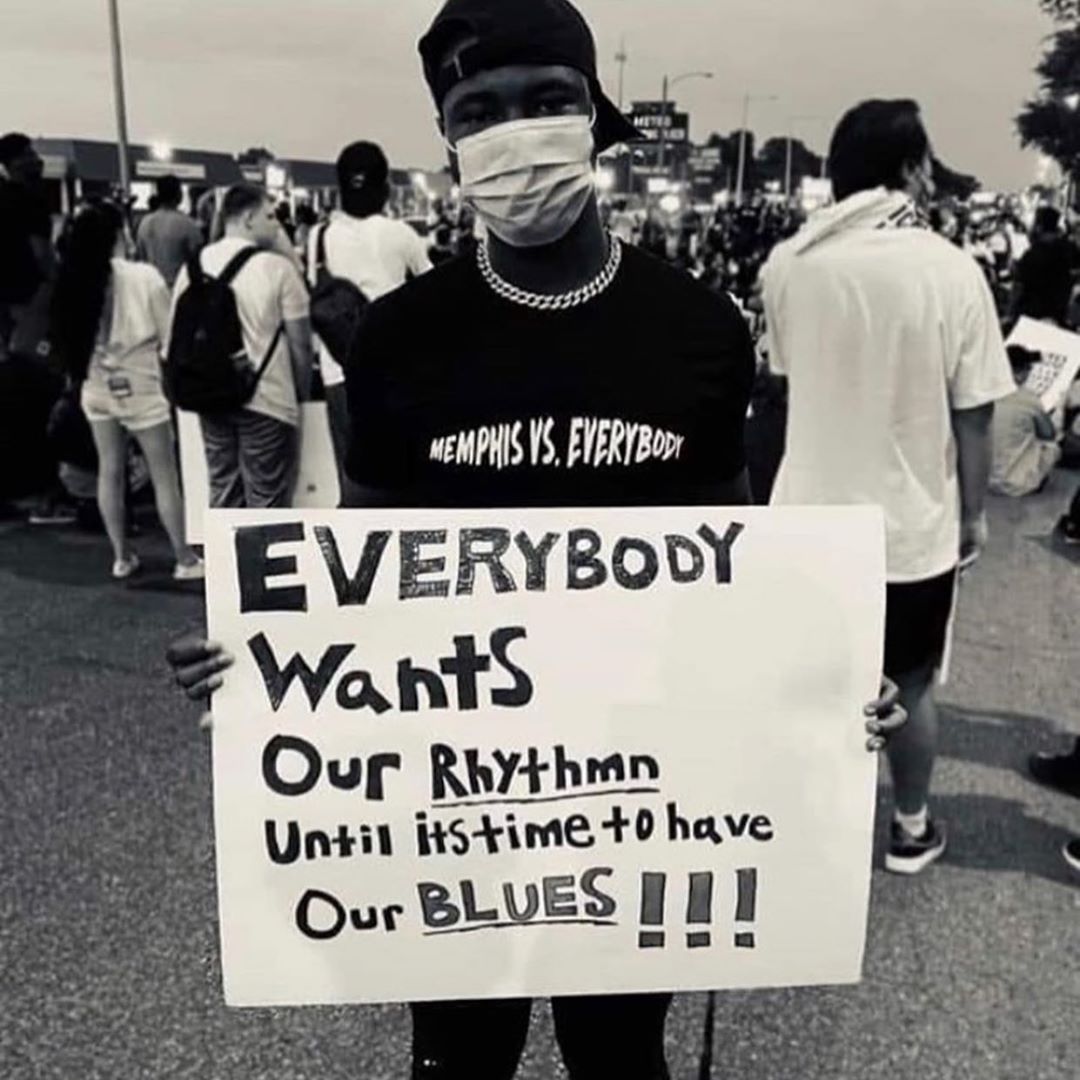 MEMPHIS VS. EVERYBODY
EVERYBODY
Wants
Our Rhythmn
Until its time to have
Our BLUES !!!